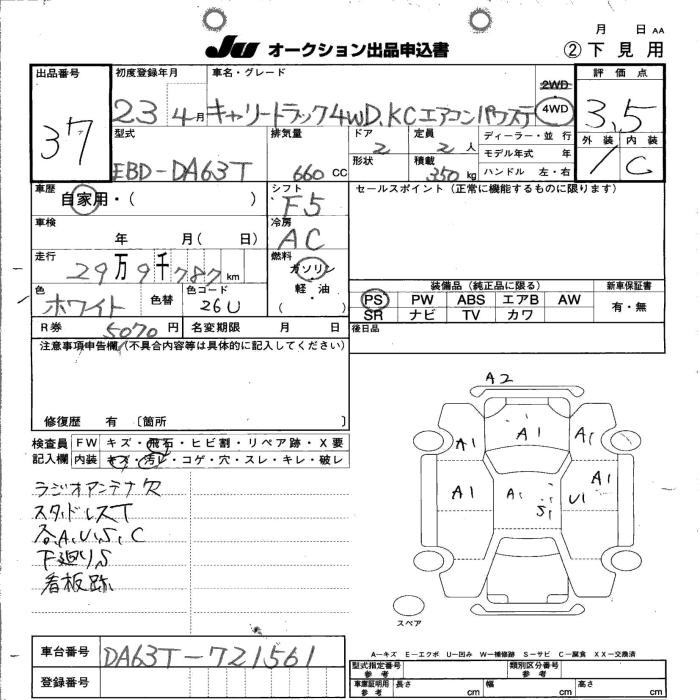 JU オークション出品申込書
月 日 AA
② 下見用
出品番号 37
初度登録年月 23 4月
車名・グレード キャリートラック4WD.KCエアコンパワステ
2WD 4WD
評価点 3.5
外装 1 内装 C
型式 EBD-DA63T
排気量 660 CC
ドア 2 定員 2 人
ディーラー・並行
モデル年式 年
形状 積載 350 kg
ハンドル 左・右
車歴 自家用・( )
シフト F5
セールスポイント(正常に機能するものに限ります)
車検 年 月( 日)
冷房 AC
走行 29万9千787km
燃料 ガソリン・軽・油 ( )
色 ホワイト 色替 色コード 26U
装備品(純正品に限る) 新車保証書
PS PW ABS エアB AW 有・無
SR ナビ TV カワ
R券 5070円 名変期限 月 日
後日品
注意事項申告欄(不具合内容等は具体的に記入してください)
修復歴 有 〔箇所 〕
検査員 FW キズ・飛石・ヒビ割・リペア跡・X要
記入欄 内装 キズ・汚レ・コゲ・穴・スレ・キレ・破レ
ラジオアンテナ欠
スタッドレスT
各.A.U.S.C
下廻りS
看板跡
A2
A1 A1 A1
A1 A1 S1 U1 A1
スペア
A-キズ E-エクボ U-凹み W-補修跡 S-サビ C-腐食 XX-交換済
車台番号 DA63T-721561
登録番号
型式指定番号 参考 類別区分番号 参考
車庫証明用 参考 長さ cm 幅 cm 高さ cm